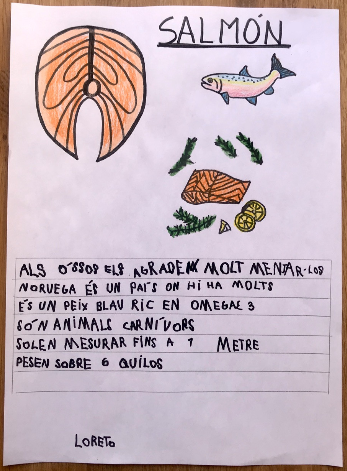 SALMÓN
ALS ÓSSOS ELS AGRADEN MOLT MENTAR-LOS
NORUEGA ÉS UN PAÍS ON HI HA MOLTS
ÉS UN PEIX BLAU RIC EN OMEGAE 3
SÓN ANIMALS CARNÍVORS
SOLEN MESURAR FINS A 1 METRE
PESEN SOBRE 6 QUILOS
LORETO